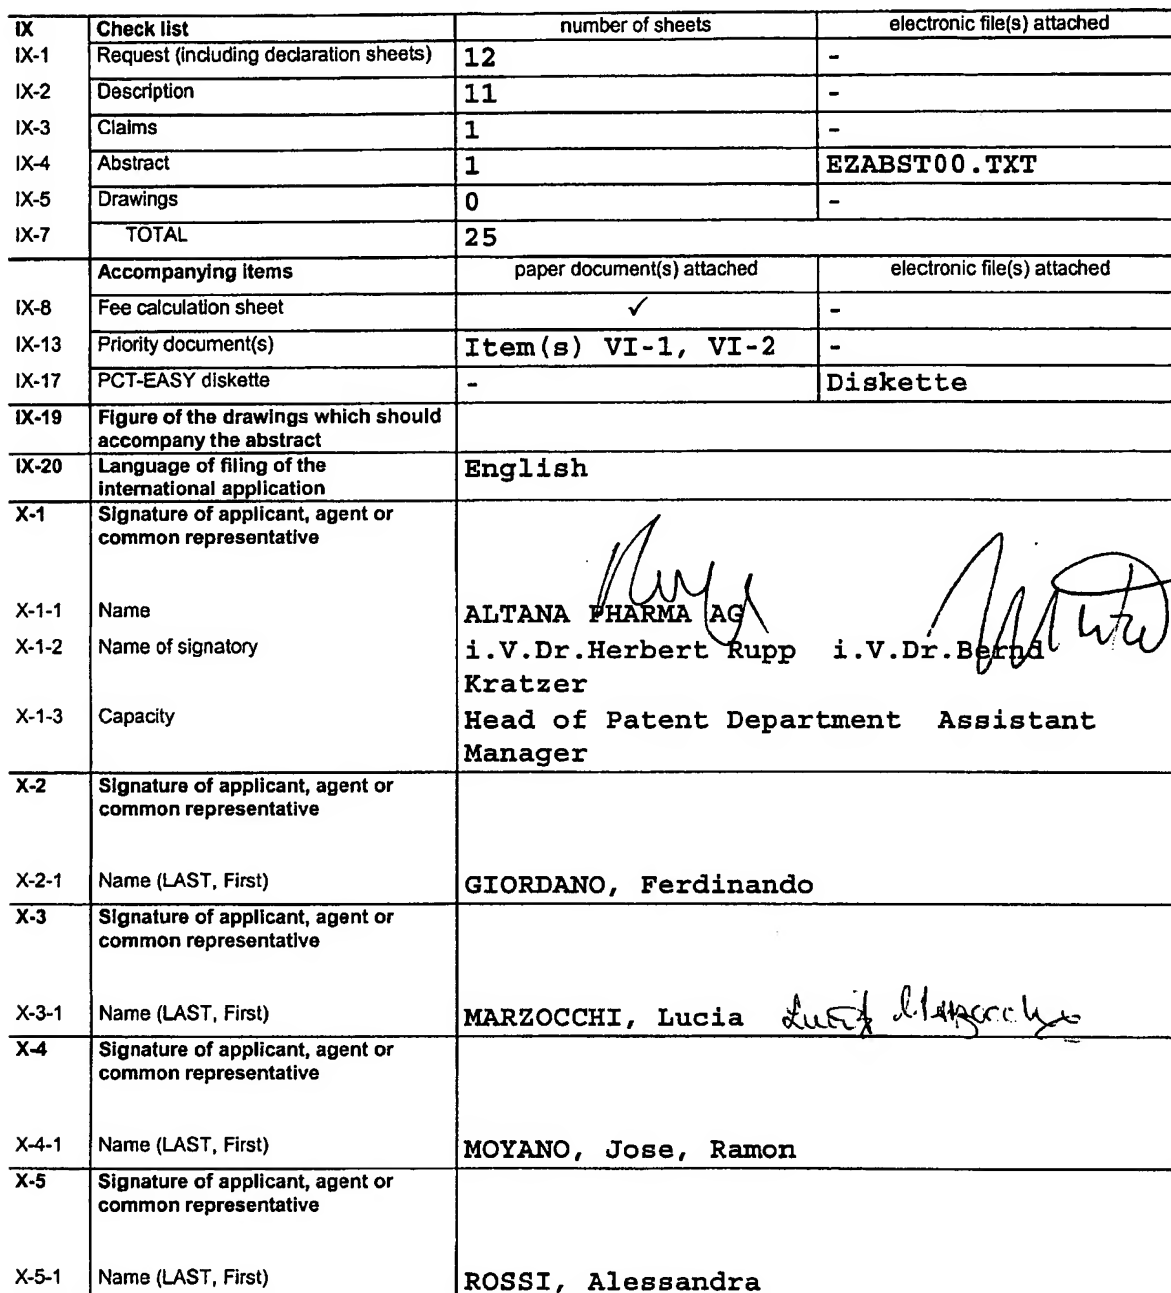 IX Check list number of sheets electronic file(s) attached
IX-1 Request (including declaration sheets) 12 -
IX-2 Description 11 -
IX-3 Claims 1 -
IX-4 Abstract 1 EZABST00.TXT
IX-5 Drawings 0 -
IX-7 TOTAL 25
Accompanying items paper document(s) attached electronic file(s) attached
IX-8 Fee calculation sheet ✓ -
IX-13 Priority document(s) Item(s) VI-1, VI-2 -
IX-17 PCT-EASY diskette - Diskette
IX-19 Figure of the drawings which should
accompany the abstract
IX-20 Language of filing of the English
international application
X-1 Signature of applicant, agent or
common representative
X-1-1 Name ALTANA PHARMA AG
X-1-2 Name of signatory i.V.Dr.Herbert Rupp i.V.Dr.Bernd
Kratzer
X-1-3 Capacity Head of Patent Department Assistant
Manager
X-2 Signature of applicant, agent or
common representative
X-2-1 Name (LAST, First) GIORDANO, Ferdinando
X-3 Signature of applicant, agent or
common representative
X-3-1 Name (LAST, First) MARZOCCHI, Lucia Lucia Marzocchi
X-4 Signature of applicant, agent or
common representative
X-4-1 Name (LAST, First) MOYANO, Jose, Ramon
X-5 Signature of applicant, agent or
common representative
X-5-1 Name (LAST, First) ROSSI, Alessandra